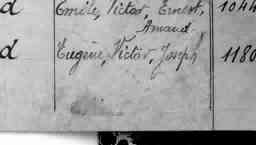 d Emile, Victor Ernest, 1044
Armand
d Eugène, Victor, Joseph 1180